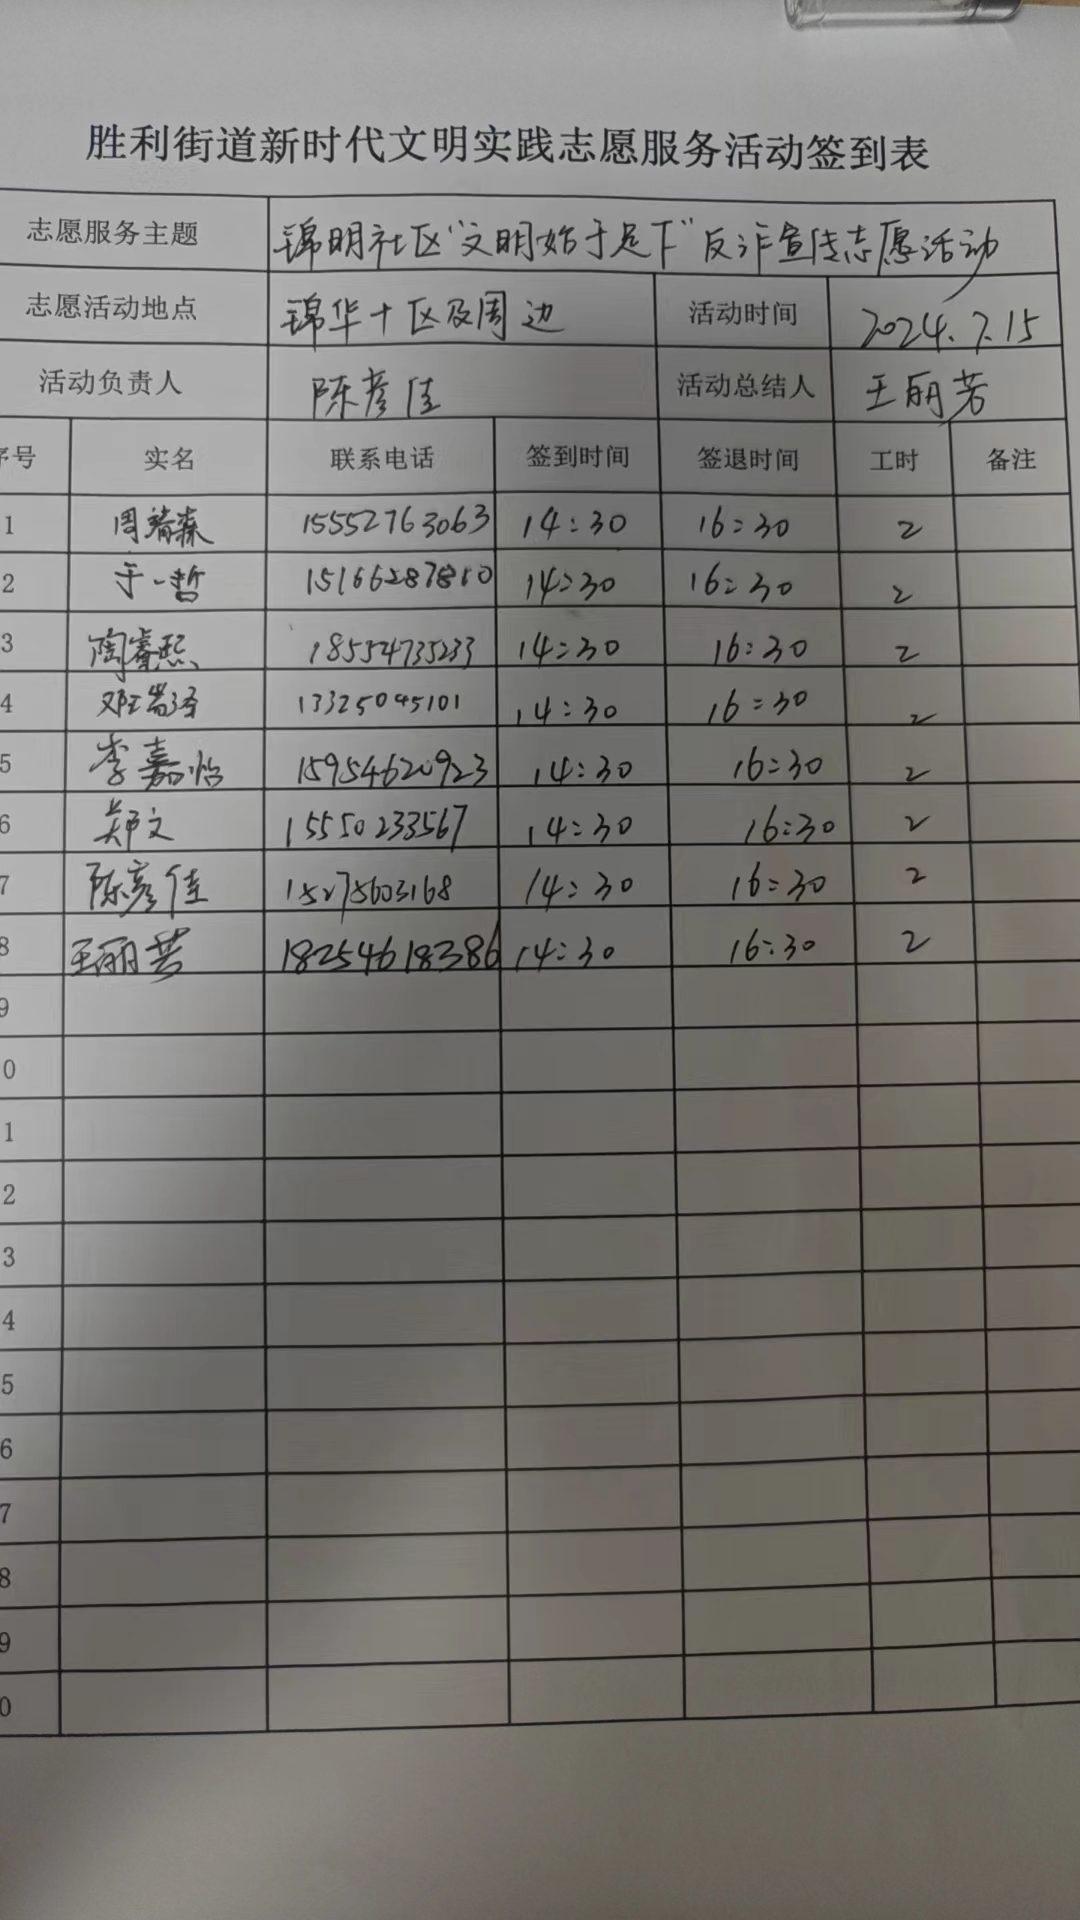 胜利街道新时代文明实践志愿服务活动签到表
志愿服务主题 锦明社区“文明始于足下”反诈宣传志愿活动
志愿活动地点 锦华十区及周边 活动时间 2024.7.15
活动负责人 陈彦佳 活动总结人 王丽芳
序号 实名 联系电话 签到时间 签退时间 工时 备注
1 周靖森 15552763063 14:30 16:30 2
2 于一哲 15166287810 14:30 16:30 2
3 陶睿熙 18554735233 14:30 16:30 2
4 邓岩泽 13325045101 14:30 16:30 2
5 李嘉怡 15954620923 14:30 16:30 2
6 郑文 15550233567 14:30 16:30 2
7 陈彦佳 15275603168 14:30 16:30 2
8 王丽芳 18254618386 14:30 16:30 2
9
0
1
2
3
4
5
6
7
8
9
0